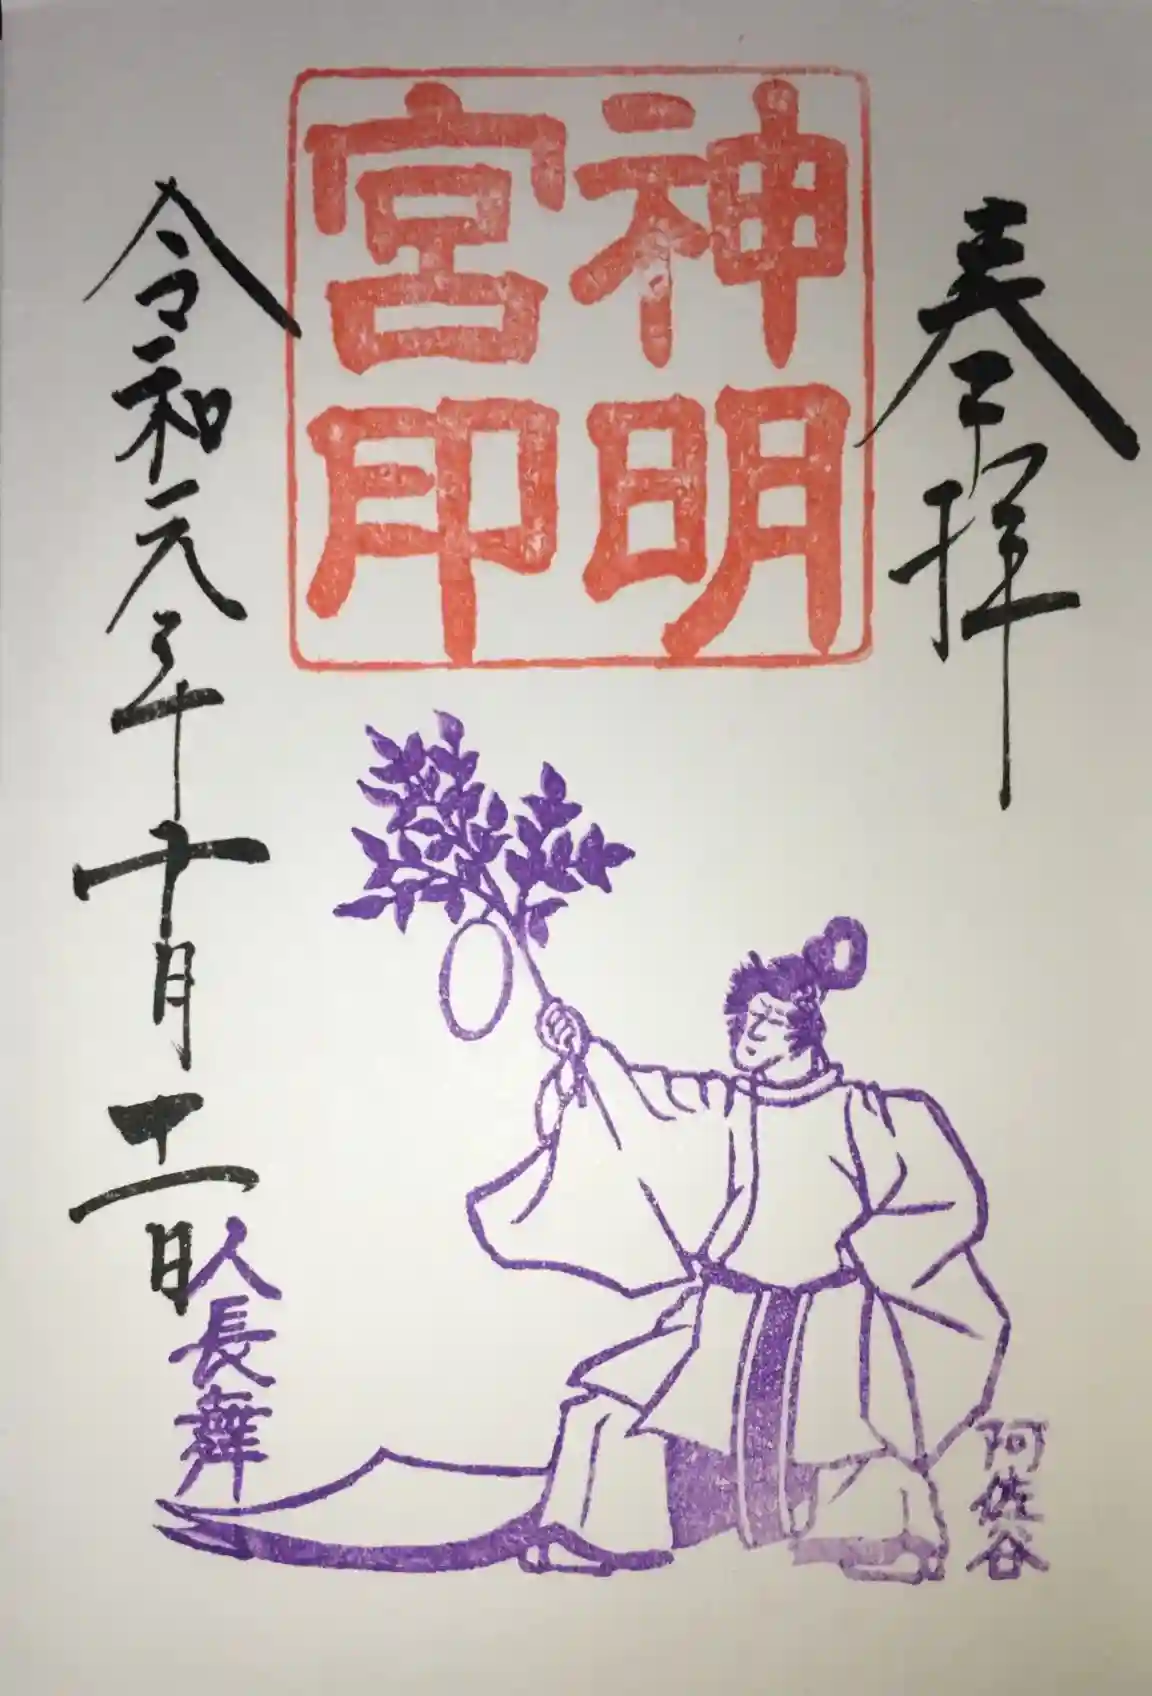 奉拝
神明
宮印
令和元年十月
日
人長舞
阿佐谷